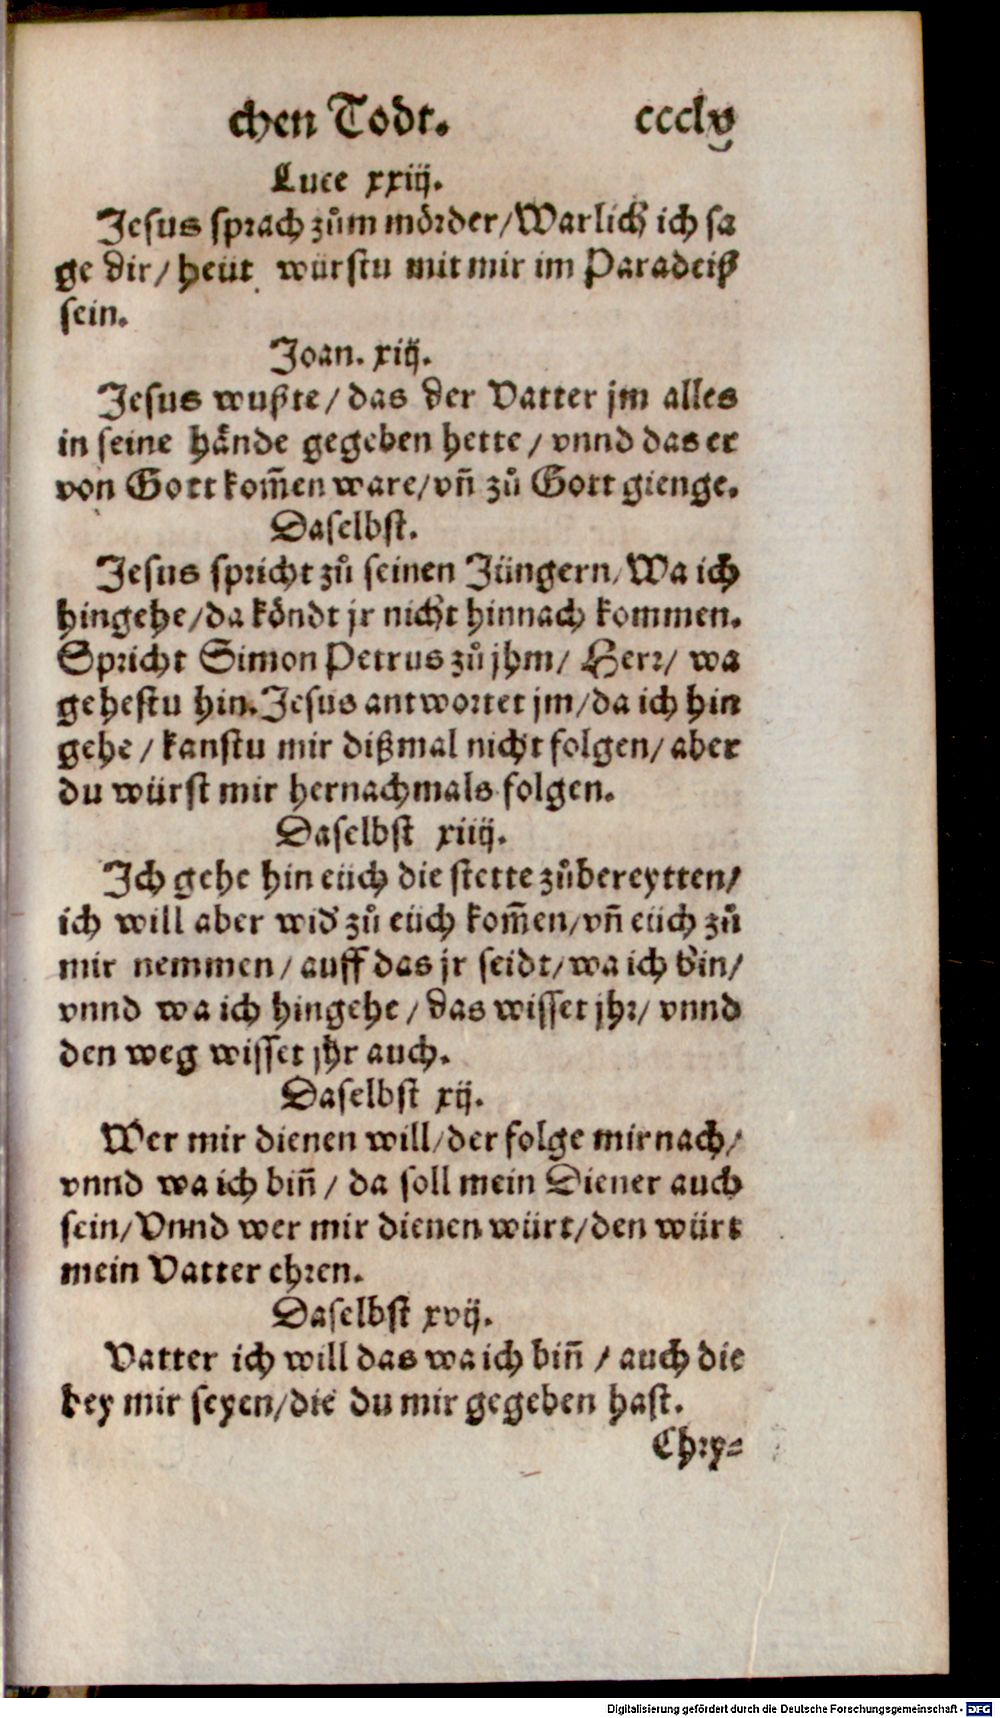 chen Todt. ccclv
Luce xxiij.
Jesus sprach zům mörder/Warlich ich sa
ge dir/ heüt würstu mit mir im Paradeiß
sein.
Joan. xiij.
Jesus wußte/ das der Vatter jm alles
in seine hånde gegeben hette/ vnnd das er
von Gott kom̃en ware/vñ zů Gott gienge.
Daselbst.
Jesus spricht zů seinen Jüngern/Wa ich
hingehe/da köndt jr nicht hinnach kommen.
Spricht Simon Petrus zů jhm/ Herr/ wa
gehestu hin. Jesus antwortet jm/da ich hin
gehe/ kanstu mir dißmal nicht folgen/ aber
du würst mir hernachmals folgen.
Daselbst xiiij.
Ich gehe hin eüch die stette zůbereytten/
ich will aber wid zů eüch kom̃en/vñ eüch zů
mir nemmen/ auff das jr seidt/wa ich bin/
vnnd wa ich hingehe/ das wisset jhr/ vnnd
den weg wisset jhr auch.
Daselbst xij.
Wer mir dienen will/der folge mir nach/
vnnd wa ich biñ/ da soll mein Diener auch
sein/Vnnd wer mir dienen würt/den würt
mein Vatter ehren.
Daselbst xvij.
Vatter ich will das wa ich biñ/ auch die
bey mir seyen/die du mir gegeben hast.
Chry-
Digitalisierung gefördert durch die Deutsche Forschungsgemeinschaft - DFG